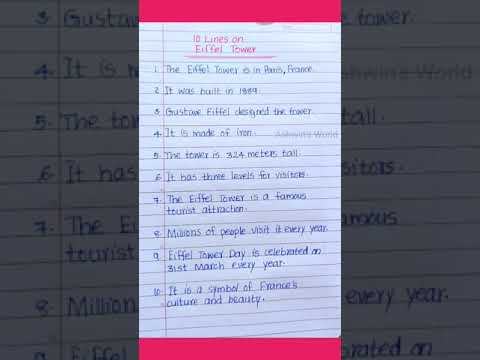 3. Gusta
4. It is
5. The to
6. It has
7. The Ei
tourist
8. Million
9. Eiffel
10 Lines on
Eiffel Tower
1. The Eiffel Tower is in Paris, France.
2. It was built in 1889.
3. Gustave Eiffel designed the tower.
4. It is made of iron.
Ashwins World
5. The tower is 324 meters tall.
6. It has three levels for visitors.
7. The Eiffel Tower is a famous
tourist attraction.
8. Millions of people visit it every year.
9. Eiffel Tower Day is celebrated on
31st March every year.
10. It is a symbol of France's
culture and beauty.
wins World
tall.
isitors.
amous
every year.
brated on